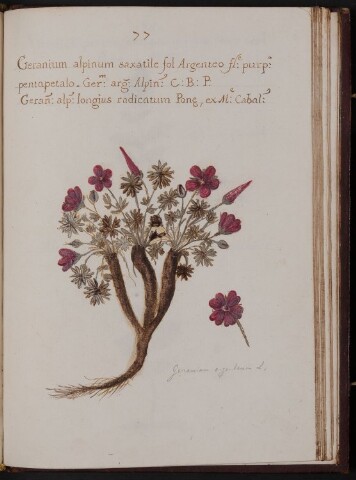 77
Geranium alpinum saxatile fol Argenteo flo: purp:
pentapetalo. Ger:m arg: Alpin: C: B: P.
Geran: alp: longius radicatum Pone, ex M: Cabal:
Geranium L.